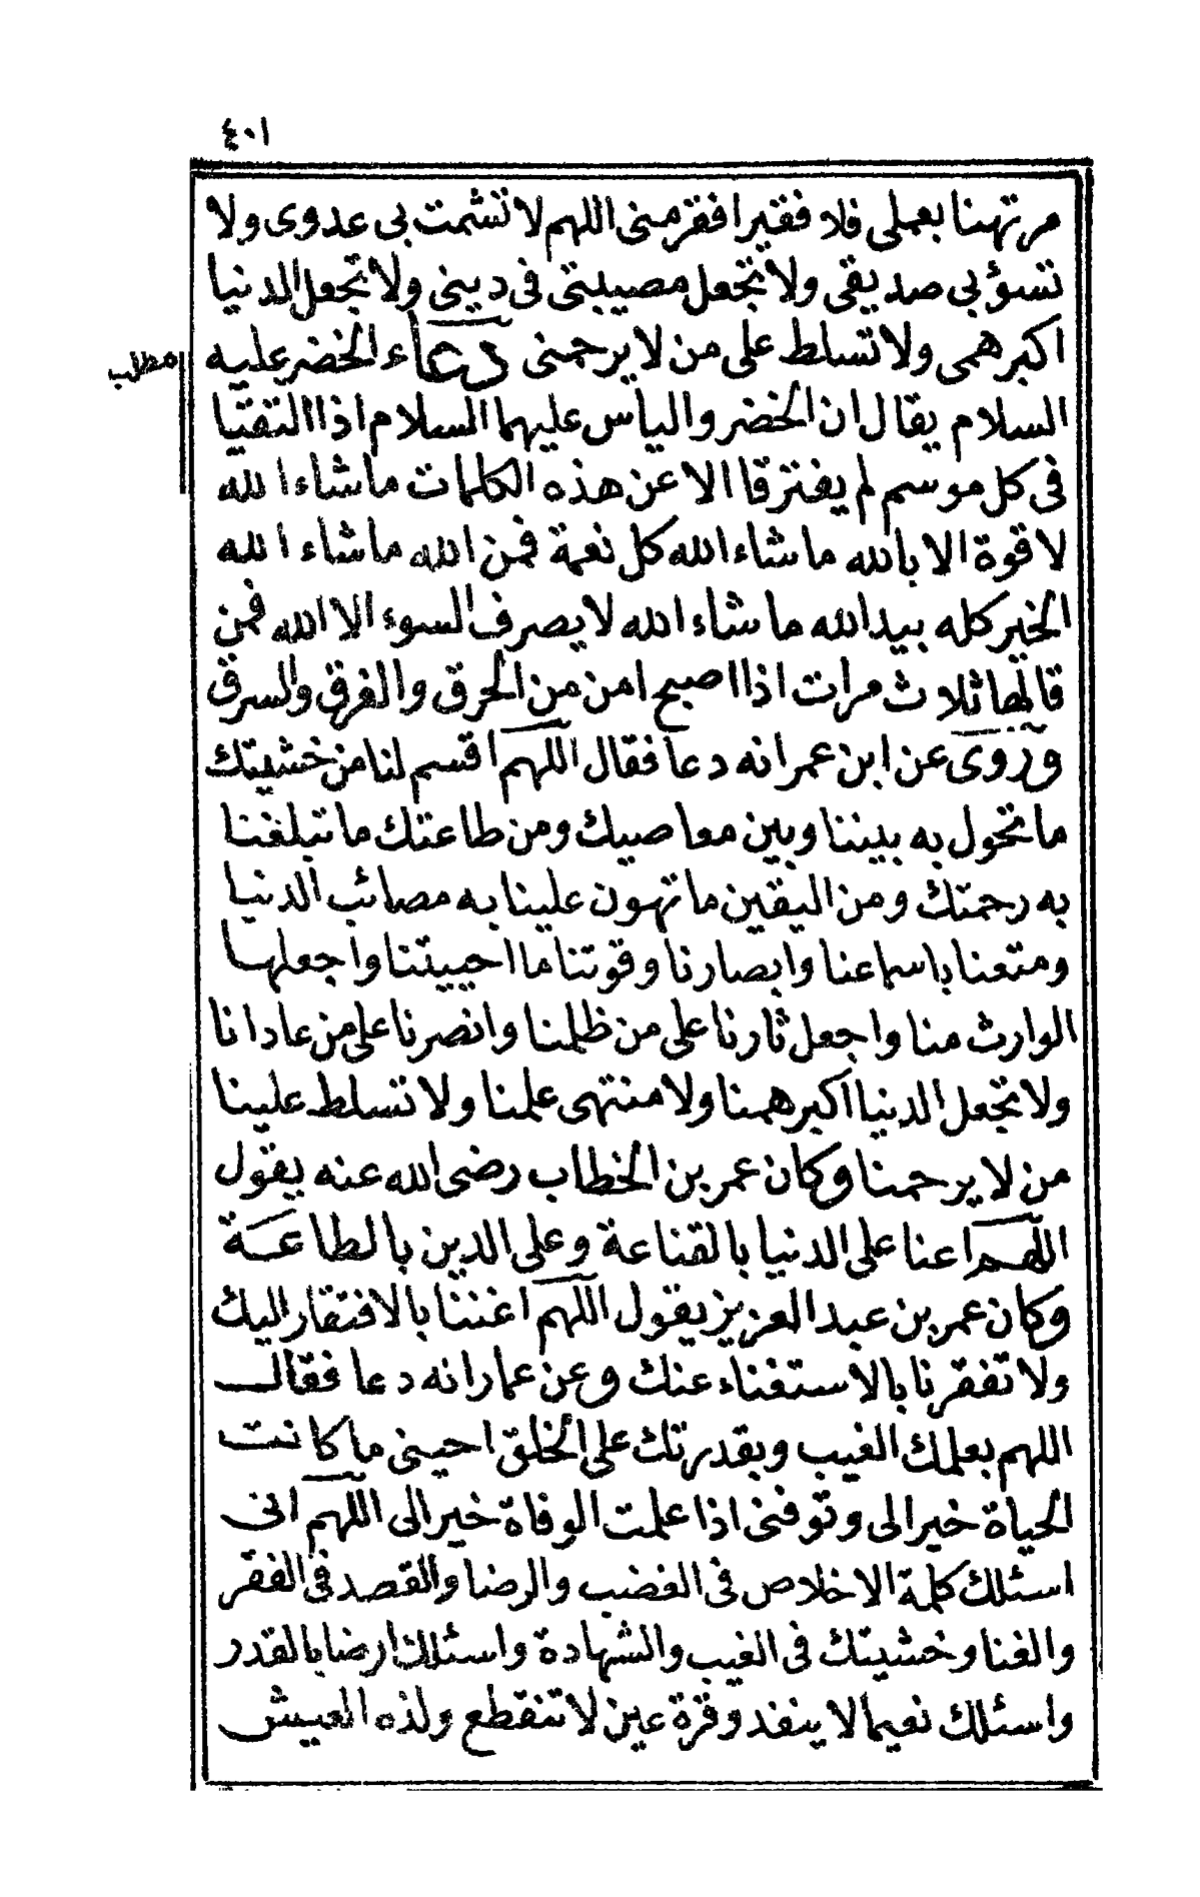 ٤٠١
مرتهنا بعملي فلا فقيرا افقر مني اللهم لا تشمت بي عدوى ولا
تسؤ بي صديقي ولا تجعل مصيبتي في ديني ولا تجعل الدنيا
اكبر همي ولا تسلط على من لا يرحمني دعاء الخضر عليه
مطلب
السلام يقال ان الخضر والياس عليهما السلام اذا التقتيا
في كل موسم لم يفترقا الا عن هذه الكلمات ماشاء الله
لا قوة الا بالله ماشاء الله كل نعمة فمن الله ماشاء الله
الخير كله بيد الله ماشاء الله لا يصرف السوء الا الله فمن
قالها ثلاث مرات اذا اصبح امن من الحرق والغرق والسرق
وروى عن ابن عمر انه دعا فقال اللهم اقسم لنا من خشيتك
ما تحول به بيننا وبين معاصيك ومن طاعتك ما تبلغنا
به رحمتك ومن اليقين ما تهون علينا به مصائب الدنيا
ومتعنا باسماعنا وابصارنا وقوتنا ما احييتنا واجعلها
الوارث منا واجعل ثارنا على من ظلمنا وانصرنا على من عادانا
ولا تجعل الدنيا اكبر همنا ولا منتهى علمنا ولا تسلط علينا
من لا يرحمنا وكان عمر بن الخطاب رضى الله عنه يقول
اللهم اعنا على الدنيا بالقناعة وعلى الدين بالطاعة
وكان عمر بن عبد العزيز يقول اللهم اغننا بالافتقار اليك
ولا تفقرنا بالاستغناء عنك وعن عمار انه دعا فقال
اللهم بعلمك الغيب وبقدرتك على الخلق احيني ما كانت
الحياة خيرا لى وتوفنى اذا علمت الوفاة خيرا لى اللهم انى
اسئلك كلمة الاخلاص في الغضب والرضا والقصد في الفقر
والغنا وخشيتك في الغيب والشهادة واسئلك ارضا بالقدر
واسئلك نعيما لا ينفد وقرة عين لا تنقطع ولذه العيش